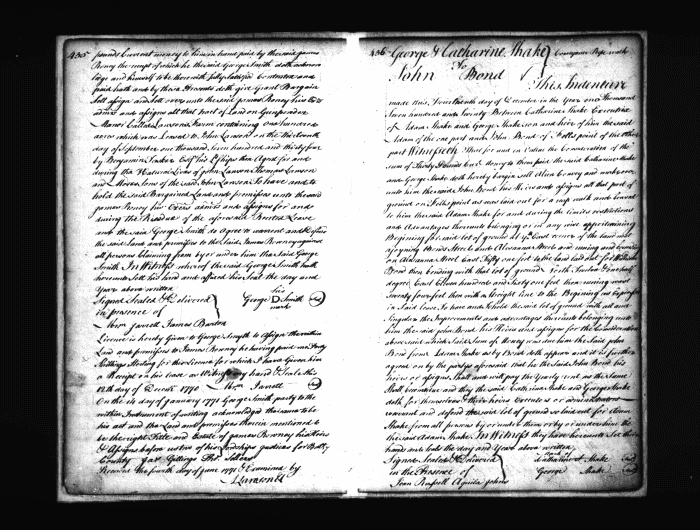 435
pounds Current money to him in hand paid by the said James
Roney the receipt of which he the said George Smith doth acknow
ledge and himself to be therewith fully satisfied Contented and
paid hath and by these Presents doth give Grant Bargain
Sell assign and sett over unto the said James Roney his Ex
adms and assigns all that Tract of Land on Gunpowder
Manor Called Lawsons Farm containing one hundred
acres which was Leased to John Lawson on the thirteenth
day of September one thousand seven hundred and thirty four
by Benjamin Tasker Esq his Lps then Agent for and
during the Natural Lives of John Lawson Thomas Lawson
and Moses Sons of the said John Lawson To have and to
hold the said Bargained Land and premises unto the said
James Roney his Exers admrs and assigns for and
during the Residue of the aforesaid Lease
and the said George Smith do agree to warrant and Defend
the said Land and premises to the said James Roney against
all persons Claiming from by or under him the said George
Smith In Witness where of the said George Smith hath
hereunto Sett his hand and affixed his Seal the day and
Year above written
Signed Sealed & delivered
in presence of
his
George D Smith
mark
Wm Jarrett James Barton
Licence is hereby Given to George Smyth to assign the within
Land and premises to James Roney he having paid me Forty
Shillings Sterling for this Licence for which I have Given him
a Receipt on his Lease as Witness my hand & Seal this
12th day of Decr 1770 Wm Jarrett
On the 14 day of January 1771 George Smith party to the
within Instrument of writing acknowledged the same to be
his act and the Land and premises therein mentioned to
be the right Title and Estate of James Roney his Heirs
& Assigns before us two of his Lordships Justices for Balt
County Jas Gittings
Received the fourth day of June 1771 & Examined by
436
George & Catharine Shake
To
John Bond
This Indenture
made this Fourteenth day of December in the Year one Thousand
Seven hundred and Seventy Between Catharine Shake Executrix
of Adam Shake and George Shake son and heir of him the said
Adam of the one part and John Bond of Fells point of the other
part Witnesseth That for and in Consideration of the
sum of Thirty Pounds Curt Money to them paid the said Catharine Shake
and George Shake doth hereby bargain sell Alien Convey and make over
unto him the said John Bond his Heirs and assigns all that part of
ground on Fells point as was laid out for a and leased
to him the said Adam Shake for and during the limits restrictions
and Advantages thereunto belonging or in any wise appertaining
Beginning for said lot of ground at the corner of the Land
adjoyning Bonds Street and Alisanna Street and running and bounding
on Alisanna Street East Fifty one feet to the land laid out for William
Bond then bending with that lot of ground North
degrees East Eleven hundred and Sixty one feet then running west
Twenty four feet then with a straight line to the Beginning as Expressed
in said lease To have and to hold the said lot of ground with all and
singular the Improvements and advantages thereunto belonging unto
him the said John Bond his Heirs and assigns for the Consideration
above said which said Sum of Money was due him the said John
Bond from Adam Shake as by Bond doth appear and it is further
agreed on by the partys aforesaid that he the said John Bond his
heirs or assigns Shall and will pay the Yearly rent as the same
shall become due and they the said Catharine Shake and George Shake
doth for themselves & their heirs Executors or administrators
warrant and defend the said lot of ground so laid out for Adam
Shake from all persons by or under them or by or under him the
the said Adam Shake In Witness they have hereunto Set their
hands and seals the day and Year above written
Signed Sealed & Delivered
in the Presence of
Catharine Shake
George Shake
Joan Russell Aquila Johns